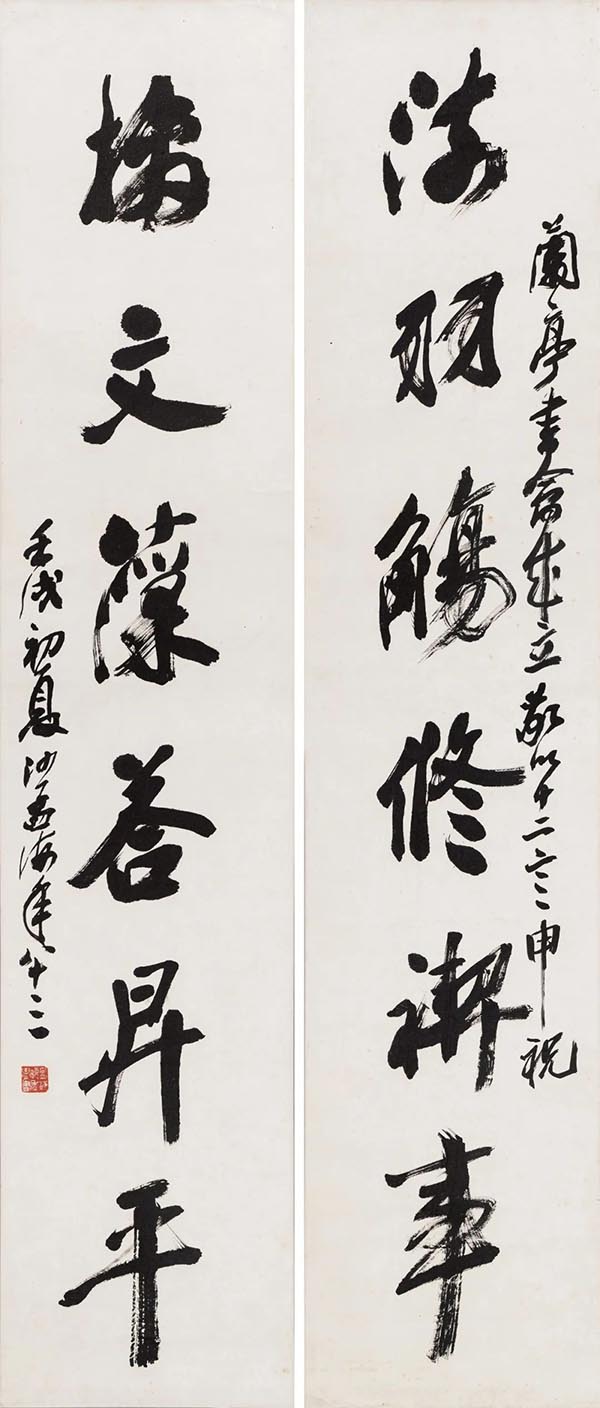 流羽觴修禊事
蘭亭書會成立敬以十二言申祝
摛文藻答昇平
壬戌初夏沙孟海年八十三